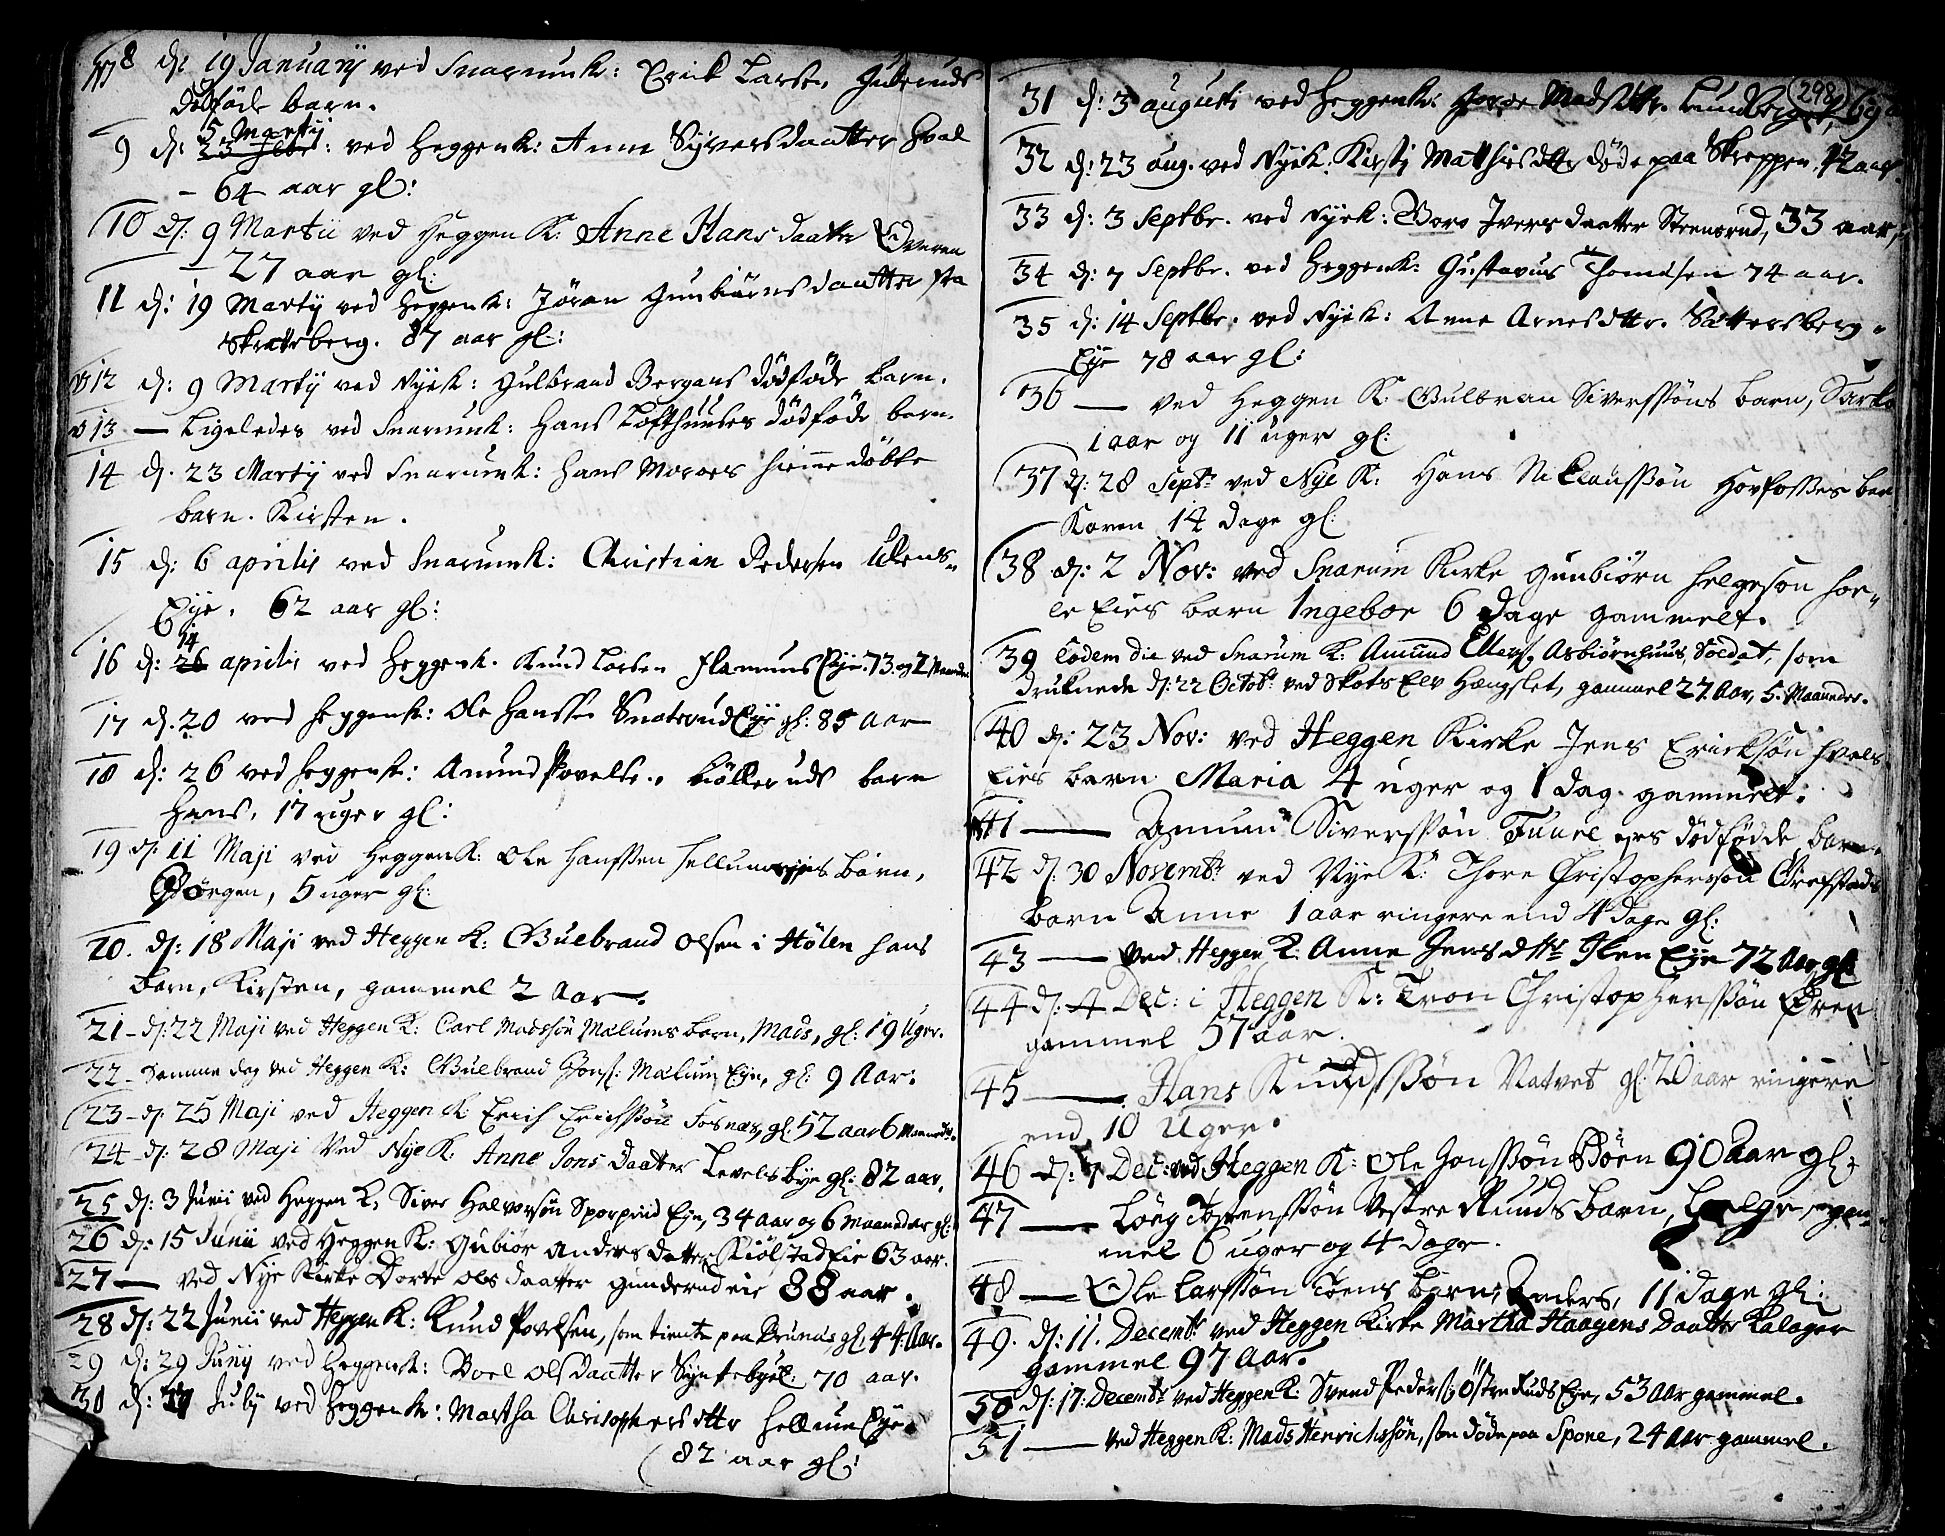 8 d: 19 January ved Snarumk: Erick Larsen Guberuds
dödföde barn.
5 Marty
9 d: 23 Febr: ved Heggenk: Anne Syversdaatter Hval
- 64 aar gl:
10 d: 9 Martii ved Heggen K: Anne Hansdaatter Overen
27 aar gl:
11 d: 19 Marty ved Heggenk: Jöran Gunbiörnsdaatter fra
Skrattsberg. 87 aar gl:
12 d: 9 Marty ved Nyek: Gulbrand Bergans dödföde barn.
13 — Ligeledes ved Snarumk: Hans Lofthuuses dödföde barn.
14 d. 23 Marty ved Snarumk: Hans Moroes hiemedöbte
barn. Kirsten.
15 d: 6 aprilis ved Snarumk: Christian Pedersen Ulens-
Eye. 62 aar gl:
14
16 d: 26 aprilis ved Heggenk. Knud Larsen Flannus Eye. 73. og 2 Maaneder
17 d. 20 ved Heggenk: Ole Hanssen Snotrud Eye gl: 85 Aar
18 d: 26 ved Heggenk: Amund Povelse. Kölleruds barn
Hans, 17 uger gl:
19 d: 11 Maji ved Heggen K: Ole Hanssen Hellumeyes barn,
Börgen, 5 uger gl:
20. d: 18 Maji ved Heggen K: Gulbrand Olsen i Hölen hans
barn, Kirsten, gammel 2 Aar.
21 - d: 22 Maji ved Heggen K: Carl Madssön Mælums barn, Mads, gl: 19 Uger.
22 - Samme dag ved Heggen K: Gulbrand Jons: Mælum Eye, gl: 9 Aar:
23 - d: 25 Maji ved Heggen K: Erich Erichssön Fosnæs, gl: 52 aar 6 Maaneder.
24 - d: 28 Maji Ved Nye K: Anne Jons Daatter Levelsbye gl: 82 aar.
25 d: 3 Junii ved Heggen K: Siver Halvorsön Sporpind Eye, 34 aar og 6 maaneder gl:
26 d: 15 Junii ved Heggen K: Gubiör Anders datter Kiölstad Eie 63 aar.
27 — ved Nye Kirke Dorte Olsdaatter Gunderud eie 88 aar.
28 d: 22 Junii ved Heggen K: Knud Povelsen, som tiente paa Bruns, gl: 44 Aar.
29 d: 29 Juny ved Heggenk: Boel Olsdaatter Syntebyel: 70 aar.
30 d: July ved Heggenk: Martha Christophersdttr Hellum Eye.
82 aar gl:
298
31 d: 3 augusti ved Heggenk: Madsdttr. Lundberget, 69
32 d: 23 aug. ved Nyek. Kirsti Matthisdttr döde paa Skreppen. 12 aar.
33 d: 3 Septbr. ved Nyek: Boro Iversdaatter Steensrud, 33 aar,
34 d: 7 Septbr. ved Heggenk: Gustavus Thomesen 74 aar.
35 d: 14 Septbr. ved Nyek: Anne Arnesdttr. Sættersberg-
Eye 78 aar gl:
36 — ved Heggen K: Gulbran Siverssöns barn, Sarke
1 aar og 11 uger gl:
37 d: 28 Septr ved Nye K: Hans Niclaussön Hovfosses barn
Karen 14 dage gl:
38 d: 2 Nov: ved Snarum Kirke Gunbiörn Helgeson hoe-
le Eies barn Ingebor 6 dage gammelt.
39 Eodem die ved Snarum K: Amund Ellers, Asbiörnhuus, Soldat, som
druknede d: 22 Octobr ved Skots Elv Hængslet, gammel 27 Aar, 5. Maaneder.
40 d: 23 Nov: ved Heggen Kirke Jens Ericksön hvals
Eies barn Maria 4 uger og 1 dag. gammelt.
41 — Amund Siverssön Fuuel eies dödfödde barn.
42 d: 30 Novembr ved Nye K: Thore Christophersön Grefstads
barn Anne 1 aar ringere end 4 dage gl:
43 — ved Heggen K: Anne Jensdttr Iken Eye 72 Aar gl
44 d: 4 Dec: i Heggen K: Tron Christopherssön Even
gammel 57 aar.
45 — Hans Knudssön Natvet gl: 20 aar ringere
end 10 Uger.
46 d: 7 Dec: ved Heggen K: Ole Jonssön Böen 90 Aar gl:
47 — Loeg Torenssön Vestre Ruuds barn, Helge, gam-
mel 6 uger og 4 dage.
48 — Ole Larssön Töens barn, Anders, 11 dage gl:
49. d: 11. Decembr ved Heggen Kirke Martha Haagens Daatter Kalager
gammel 97 Aar.
50 d: 17. Decembr ved Heggen K: Svend Peders: Östre Ruds Eye, 53 Aar gammel.
51 — ved Heggen K: Mads Henrichssön, som döde paa Spone, 24 Aar gammel.